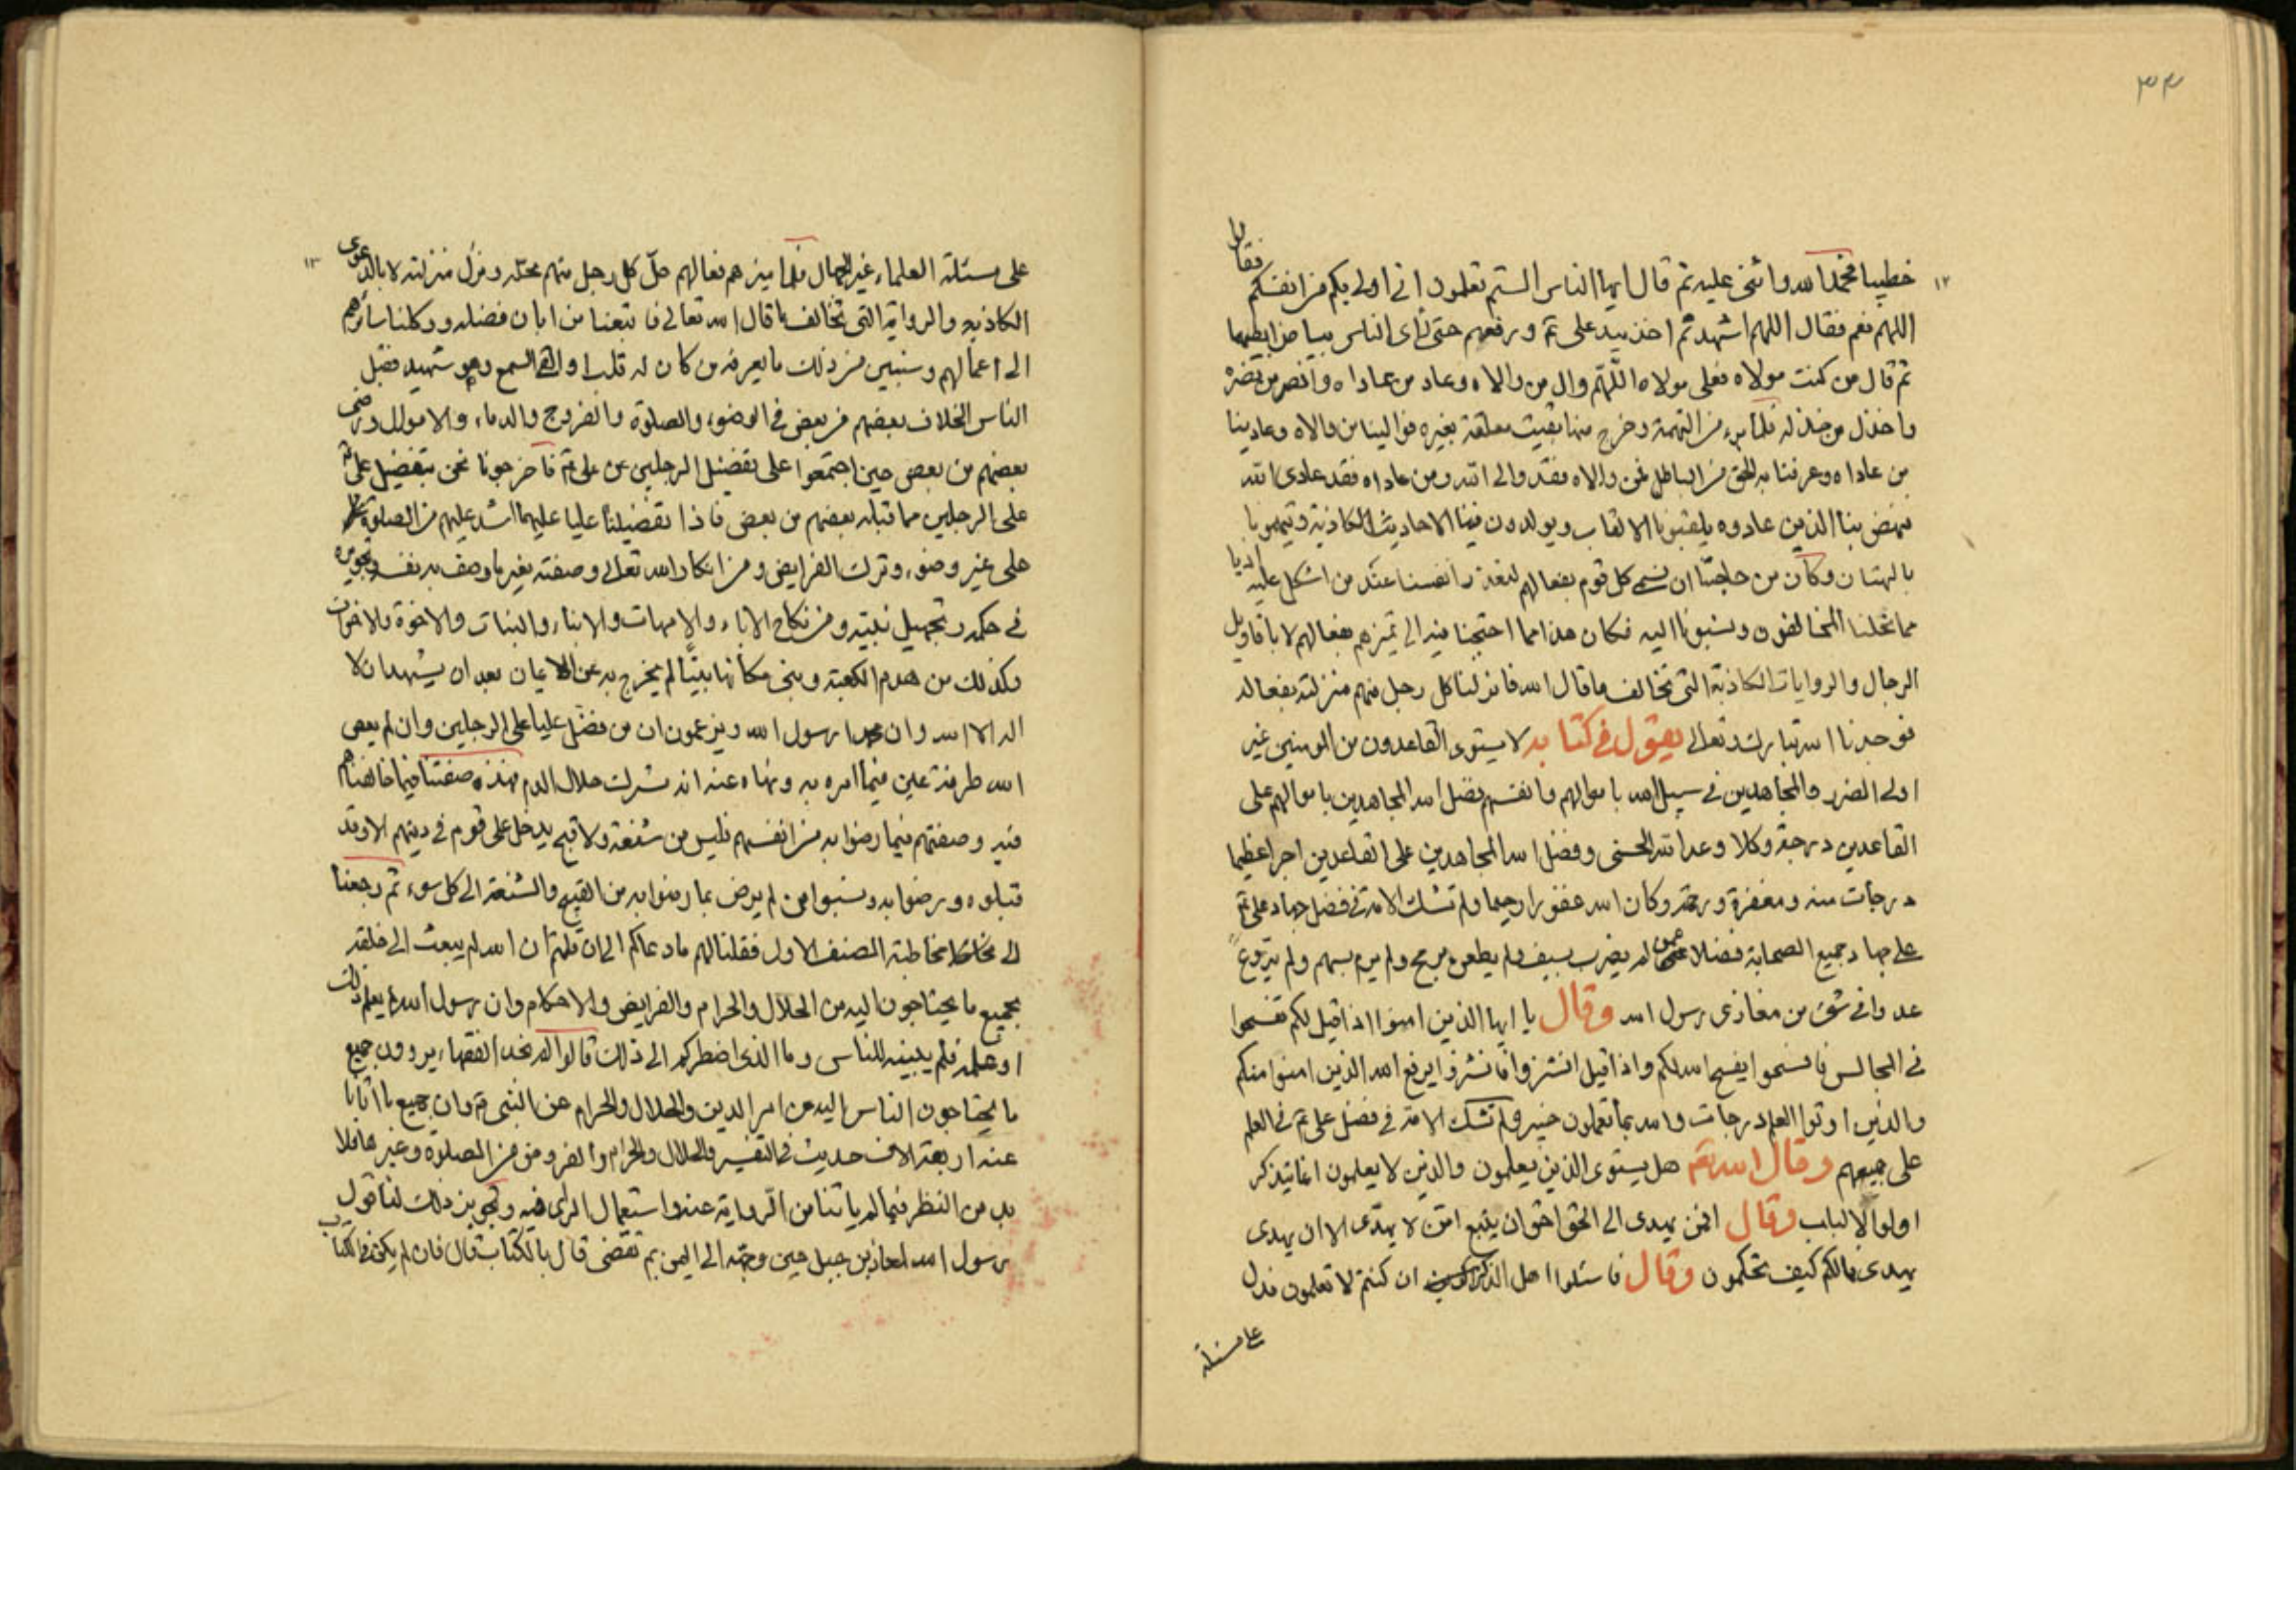 ٣٣
١٢
خطيبا فحمد الله واثنى عليه ثم قال ايها الناس الستم تعلمون انى اولى بكم من انفسكم فقالوا
اللهم نعم فقال اللهم اشهد ثم اخذ بيد على ع ورفعهم حتى رأى الناس بياض ابطيهما
ثم قال من كنت مولاه فعلى مولاه اللهم وال من والاه وعاد من عاداه وانصر من نصره
واخذل من خذله فلما برء من التهمة وخرج معلقة بغيره فوالينا من والاه وعادينا
من عاداه وعرفنا به الحق من الباطل فمن والاه فقد والى الله ومن عاداه فقد عادى الله
فنهض بنا الذين عادوه يلقبونا الالقاب ويولدون فينا الاحاديث الكاذبة ويتهمونا
بالبهتان وكان من حاجتنا ان نسم كل قوم بفعالهم لنعذر انفسنا عند من اشكل عليه
مما نحلنا المخالفون ونسبونا اليه فكان هذا مما احتجنا فيه الى تميزهم بفعالهم لا باقاويل
الرجال والروايات الكاذبة التى تخالف ما قال الله فانزلنا كل رجل منهم منزلته بفعاله
فوجدنا الله تبارك وتعالى يقول فى كتابه لا يستوى القاعدون من المومنين غير
اولى الضرر والمجاهدين فى سبيل الله باموالهم وانفسهم فضل الله المجاهدين باموالهم على
القاعدين درجة وكلا وعد الله الحسنى وفضل الله المجاهدين على القاعدين اجرا عظيما
درجات منه ومغفرة ورحمة وكان الله غفورا رحيما ولم تشك الامة فى فضل جهاد على ع
على جهاد جميع الصحابة فضلا عمن لم يضرب بسيف ولم يطعن برمح ولم يرم بسهم ولم يروع
عدوا فى شئ من مغازى رسول الله وقال يا ايها الذين امنوا اذا قيل لكم تفسحوا
فى المجالس فافسحوا يفسح الله لكم واذا قيل انشزوا فانشزوا يرفع الله الذين امنوا منكم
والذين اوتوا العلم درجات والله بما تعملون خبير ولم تشك الامة فى فضل على ع فى العلم
على جميعهم وقال الله تع هل يستوى الذين يعلمون والذين لا يعلمون انما يتذكر
اولوا الالباب وقال افمن يهدى الى الحق احق ان يتبع امن لا يهدى الا ان يهدى
يهدى فمالكم كيف تحكمون وقال فاسئلوا اهل الذكر ان كنتم لا تعلمون فدل
على مسئلة
١٣
على مسئلة العلماء غير الجهال فلما ميزهم فعالهم حل كل رجل منهم محله ونزل منزلته لا بالدعوى
الكاذبه والرواية التى تخالف ما قال الله تعالى فاتبعنا من ابان فضله ووكلنا سائرهم
الى اعمالهم وسنبين من ذلك ما يعرفه من كان له قلب او القى السمع وهو شهيد فقبل
الناس الخلاف بعضهم من بعض فى الوضوء والصلوة والفروج والدماء والاموال ورضى
بعضهم من بعض حين اجتمعوا على تفضيل الرجلين عن على ع فاخرجونا نحن بتفضيل على ع
على الرجلين مما قبله بعضهم من بعض فاذا تفضيلنا عليا عليهما اشد عليهم من الصلوة
على غير وضوء وترك الفرايض ومن انكار الله تعالى وصفته بغير ما وصف به نفسه وتجويره
فى حكمه وتجهيل نبيه ومن نكاح الاباء والامهات والابناء والبنات والاخوة والاخوات
وكذلك من هدم الكعبة وبنى مكانها بيتا لم يخرج به عن الايمان بعد ان يشهد ان لا
اله الا الله وان محمدا رسول الله ويزعمون ان من فضل عليا على الرجلين وان لم يعص
الله طرفة عين فيما امره به ونهاه عنه انه مشرك حلال الدم فهذه صفتنا فيما خالفناهم
فيه وصفتهم فيما رضوا به من انفسهم فليس من شنعة ولا قبح يدخل على قوم فى دينهم الا وقد
قبلوه ورضوا به ونسبوا من لم يرض بما رضوا به من القبيح والشنعة الى كل سوء ثم رجعنا
الى مخاطبة الصنف الاول فقلنا لهم ما دعاكم الى ان قلتم ان الله لم يبعث الى خلقه
بجميع ما يحتاجون اليه من الحلال والحرام والفرايض والاحكام وان رسول الله لم يعلم ذلك
او علمه فلم يبينه للناس وما الذى اضطركم الى ذلك قالوا لم نجد الفقهاء يروون جميع
ما يحتاجون الناس اليه من امر الدين والحلال والحرام عن النبى ص وان جميع ما اتانا
عنه اربعة الاف حديث فى التفسير والحلال والحرام والفروض من الصلوة وغيرها فلا
بد من النظر فيما لم ياتنا من الرواية عنه واستعمال الراى فيه وتجويز ذلك لنا قول
رسول الله لمعاذ بن جبل حين وجهه الى اليمن بم تقضى قال بالكتاب قال فان لم يكن فى الكتاب